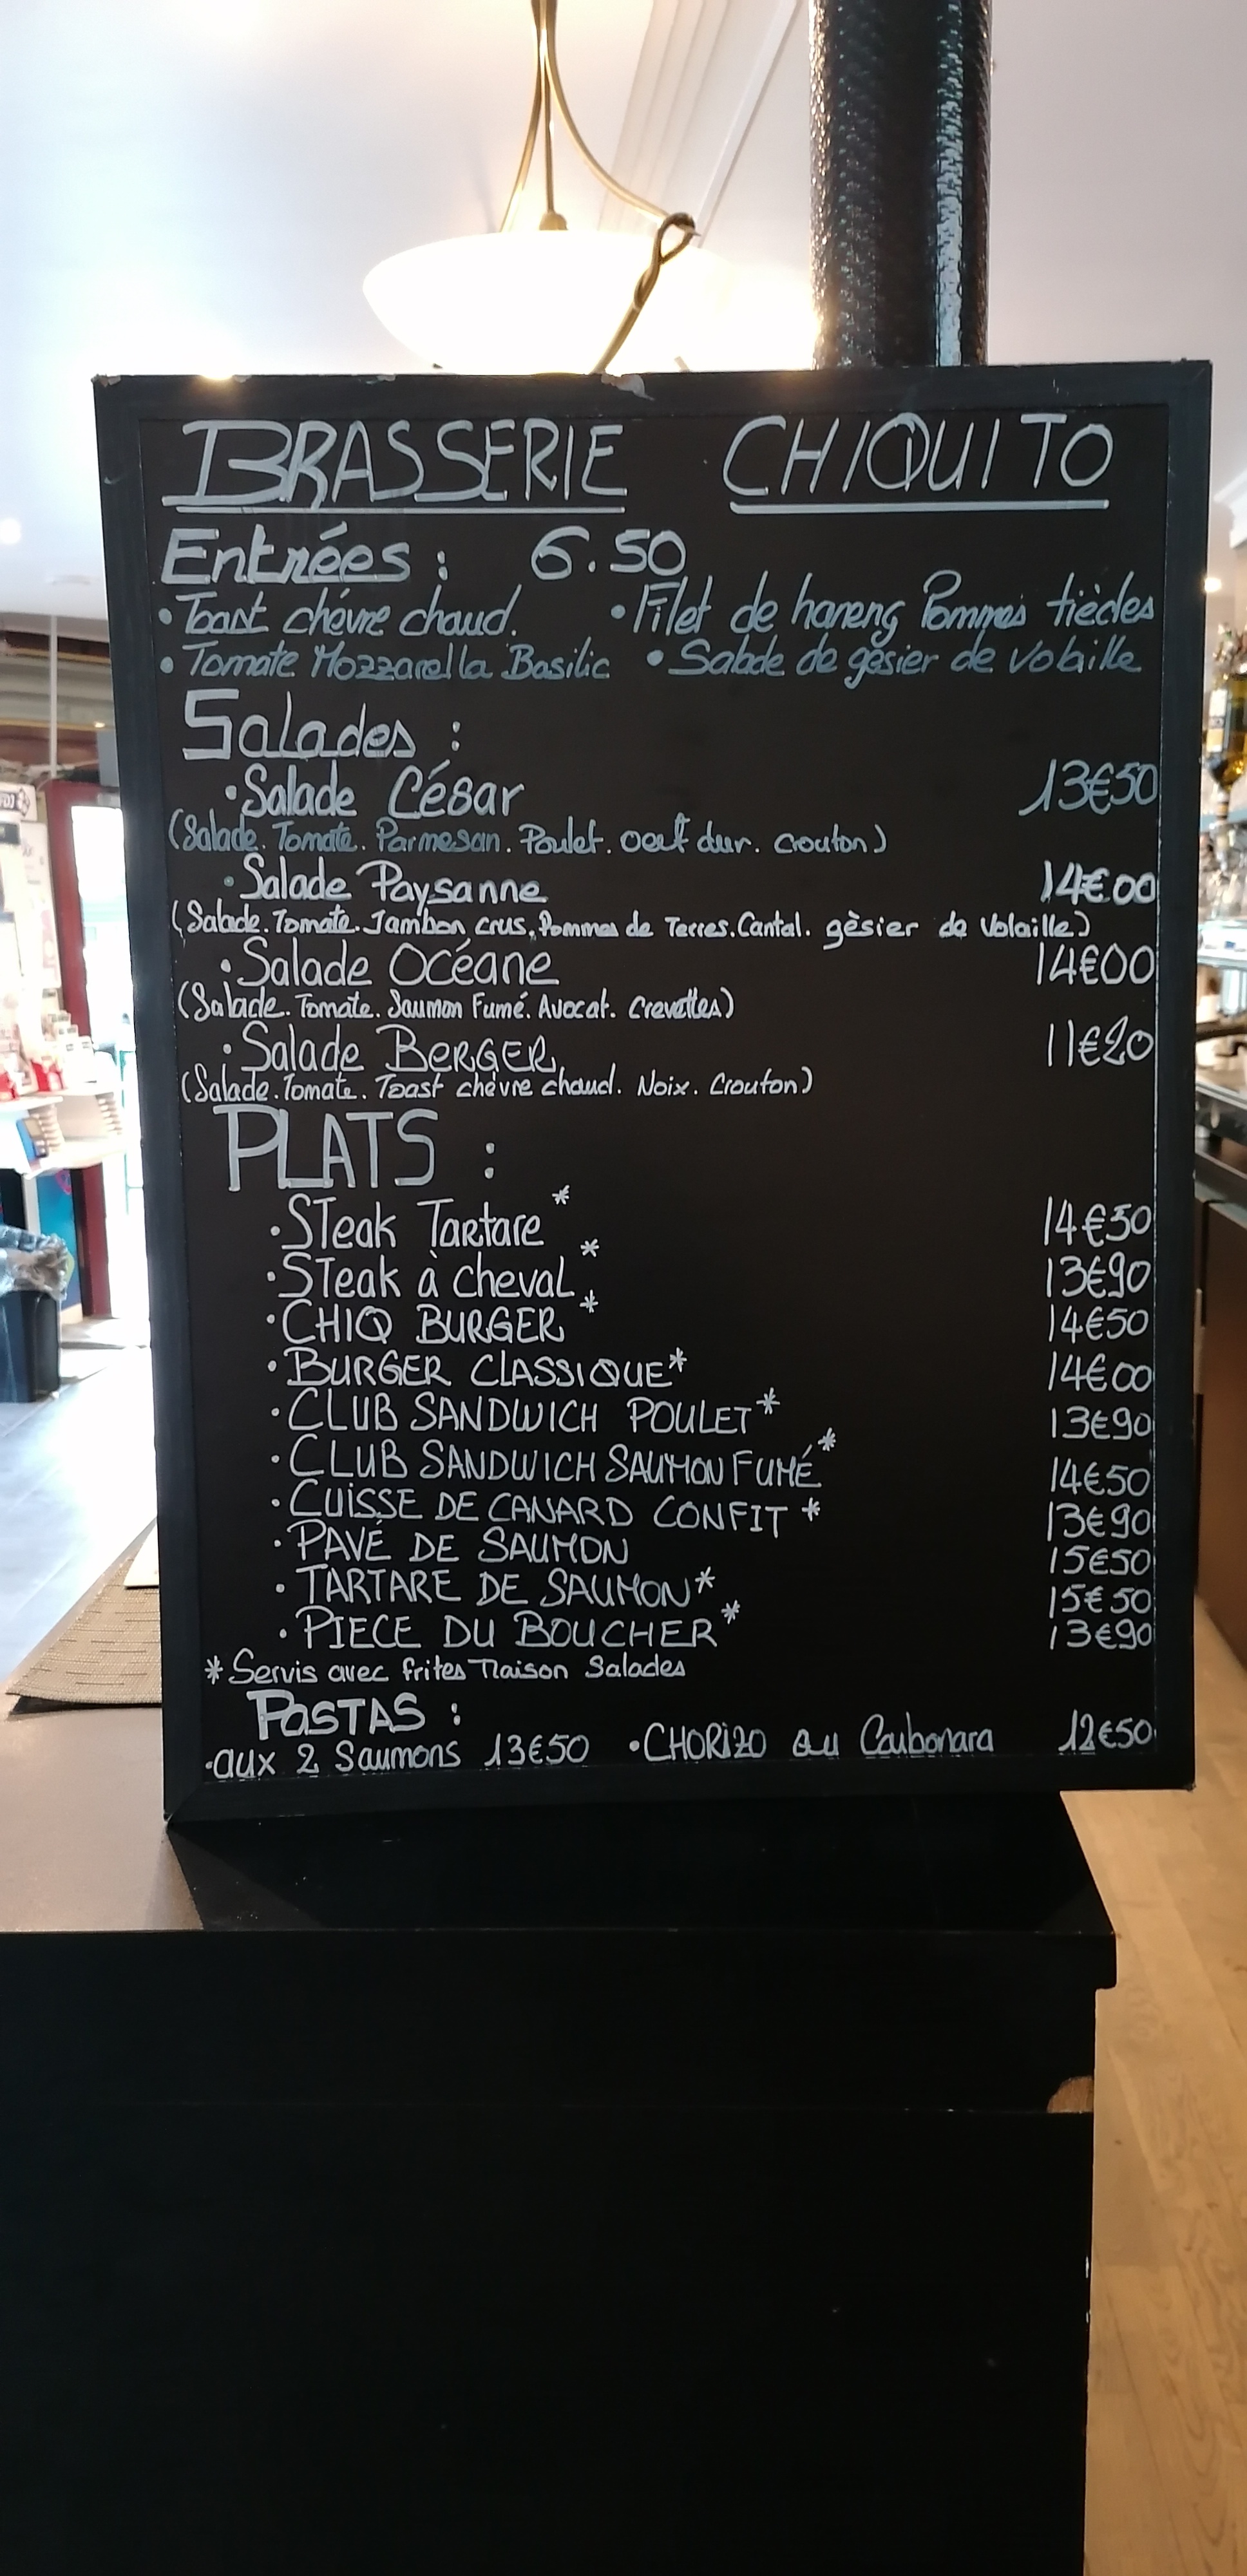 BRASSERIE CHIQUITO
Entrées : 6.50
• Toast chèvre chaud. • Filet de hareng Pommes tièdes
• Tomate Mozzarella Basilic • Salade de gésier de volaille
Salades :
• Salade César 13€50
(Salade. Tomate. Parmesan. Poulet. oeuf dur. crouton)
• Salade Paysanne 14€00
(Salade. Tomate. Jambon crus. Pommes de Terres. Cantal. gèsier de Volaille)
• Salade Océane 14€00
(Salade. Tomate. Saumon Fumé. Avocat. Crevettes)
• Salade BERGER 11€20
(Salade. Tomate. Toast chèvre chaud. Noix. Crouton)
PLATS :
• STeak Tartare * 14€50
• STeak à cheval * 13€90
• CHIQ BURGER * 14€50
• BURGER CLASSIQUE* 14€00
• CLUB SANDWICH POULET * 13€90
• CLUB SANDWICH SAUMON FUMÉ * 14€50
• CUISSE DE CANARD CONFIT * 13€90
• PAVÉ DE SAUMON 15€50
• TARTARE DE SAUMON* 15€50
• PIECE DU BOUCHER * 13€90
* Servis avec frites Maison Salades
PASTAS :
• aux 2 Saumons 13€50 • CHORIZO ou Carbonara 12€50